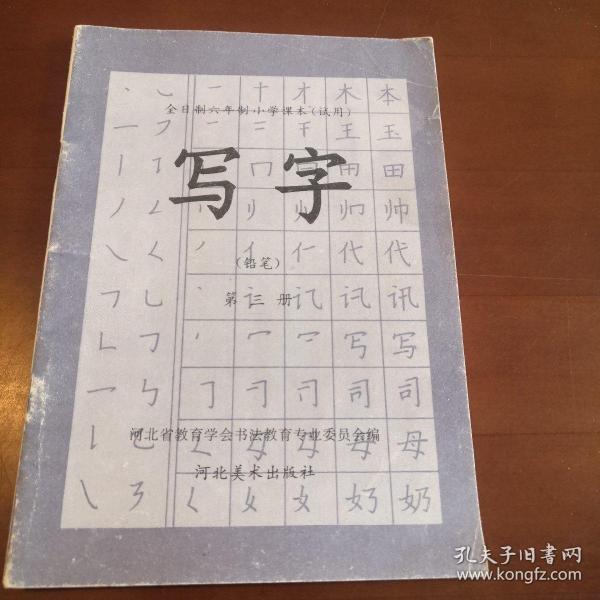 全日制六年制小学课本(试用)
写字
(铅笔)
第三册
河北省教育学会书法教育专业委员会编
河北美术出版社
一 十 才 木 本
一 二 干 王 玉
田 田
帅 帅
丿 亻 仁 代 代
讯 讯
写 写
司 司
母 母
奶 奶
孔夫子旧书网
www.kongfz.com